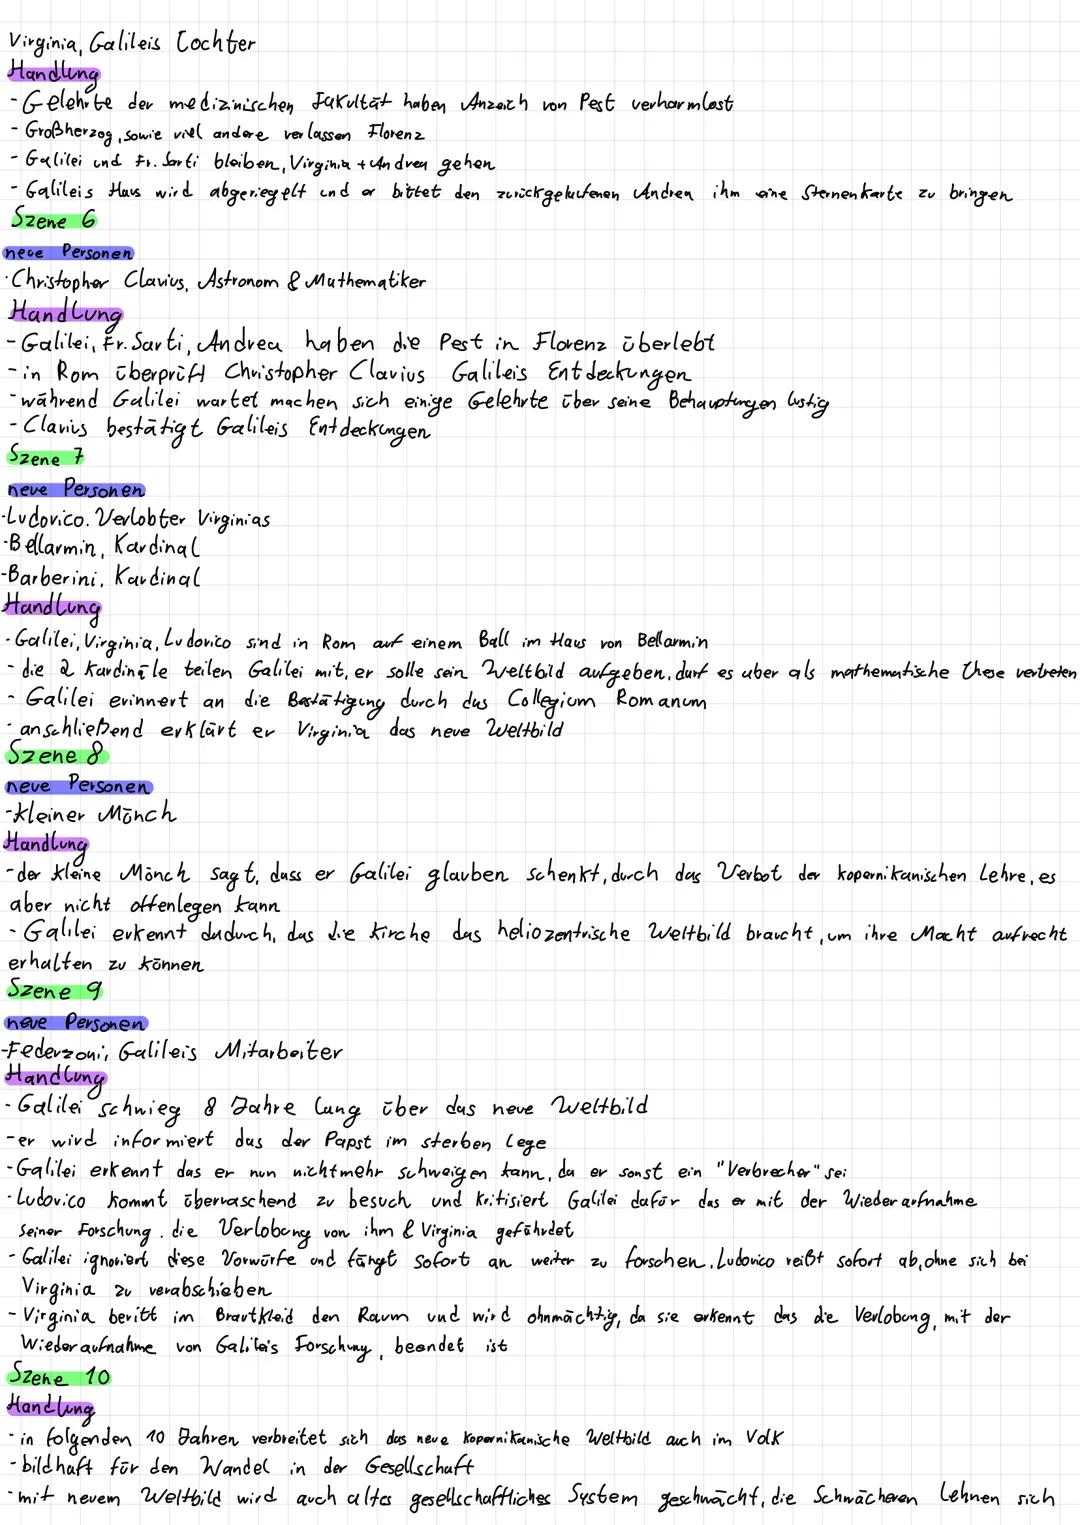 Virginia, Galileis Tochter
Handlung
- Gelehrte der medizinischen Fakultät haben Anzeich von Pest verharmlost
- Großherzog, sowie viel andere verlassen Florenz
- Galilei und Fr. Sarti bleiben, Virginia + Andrea gehen
- Galileis Haus wird abgeriegelt und er bittet den zurückgelaufenen Andrea ihm eine Sternenkarte zu bringen
Szene 6
neue Personen
- Christopher Clavius, Astronom & Mathematiker
Handlung
- Galilei, Fr. Sarti, Andrea haben die Pest in Florenz überlebt
- in Rom überprüft Christopher Clavius Galileis Entdeckungen
- während Galilei wartet machen sich einige Gelehrte über seine Behauptungen lustig
- Clavius bestätigt Galileis Entdeckungen
Szene 7
neue Personen
- Ludovico, Verlobter Virginias
- Bellarmin, Kardinal
- Barberini, Kardinal
Handlung
- Galilei, Virginia, Ludovico sind in Rom auf einem Ball im Haus von Bellarmin
- die 2 Kardinäle teilen Galilei mit, er solle sein Weltbild aufgeben, darf es aber als mathematische These vertreten
- Galilei erinnert an die Bestätigung durch das Collegium Romanum
- anschließend erklärt er Virginia das neue Weltbild
Szene 8
neue Personen
- kleiner Mönch
Handlung
- der kleine Mönch sagt, dass er Galilei glauben schenkt, durch das Verbot der kopernikanischen Lehre, es
aber nicht offenlegen kann
- Galilei erkennt dadurch, das die Kirche das heliozentrische Weltbild braucht, um ihre Macht aufrecht
erhalten zu können
Szene 9
neue Personen
- Federzoni, Galileis Mitarbeiter
Handlung
- Galilei schwieg 8 Jahre lang über das neue Weltbild
- er wird informiert das der Papst im sterben lege
- Galilei erkennt das er nun nichtmehr schweigen kann, da er sonst ein "Verbrecher" sei
- Ludovico kommt überraschend zu besuch und kritisiert Galilei dafür das er mit der Wiederaufnahme
seiner Forschung, die Verlobung von ihm & Virginia gefährdet
- Galilei ignoriert diese Vorwürfe und fängt sofort an weiter zu forschen, Ludovico reißt sofort ab, ohne sich bei
Virginia zu verabschieben
- Virginia beritt im Brautkleid den Raum und wird ohnmächtig, da sie erkennt das die Verlobung, mit der
Wiederaufnahme von Galileis Forschung, beendet ist
Szene 10
Handlung
- in folgenden 10 Jahren verbreitet sich das neue kopernikanische Weltbild auch im Volk
- bildhaft für den Wandel in der Gesellschaft
- mit neuem Weltbild wird auch altes gesellschaftliches System geschwächt, die Schwächeren lehnen sich